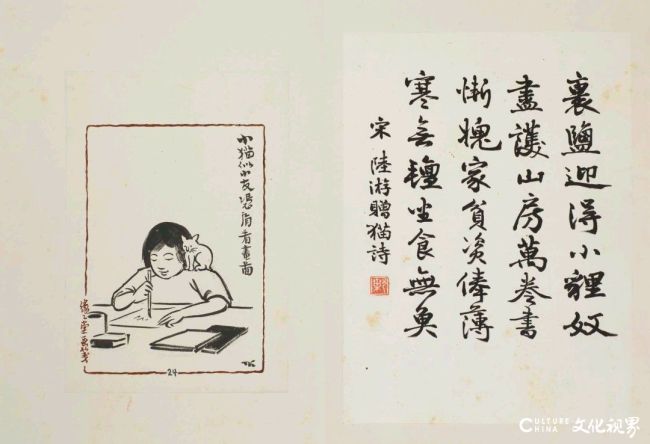 裹鹽迎得小貍奴
盡護山房萬卷書
慚愧家貧資俸薄
寒无氊坐食無魚
宋 陸游贈猫詩
小猫似小友凴肩看畫圖
緣緣堂畫箋
TK
24
CULTURE CHINA 文化视界